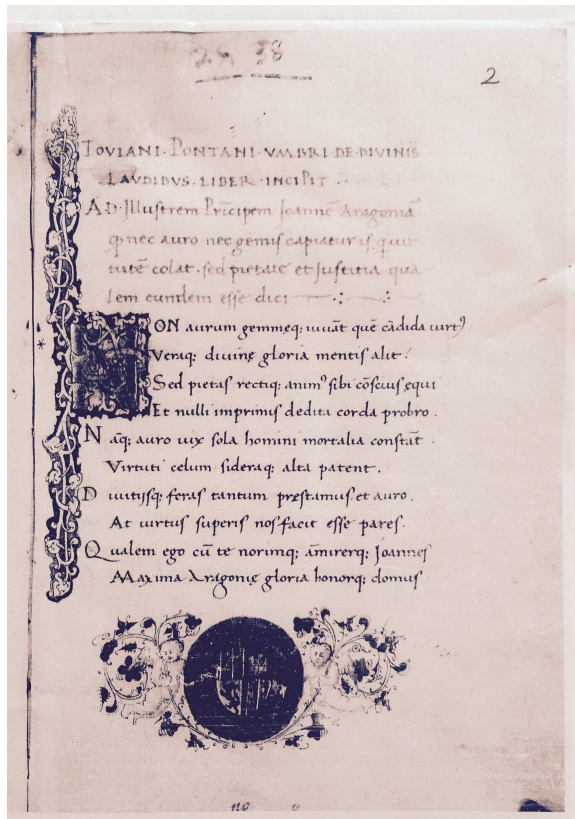 25 38
2
IOVIANI · PONTANI · VMBRI · DE · DIVINIS
LAVDIBVS · LIBER · INCIPIT ∴
AD · Illustrem Prīcipem Joannē Aragoniā
ꝙ nec auro nec gēmis capiatur is qui uir
tutē colat · sed pietate et Justitia qua
lem eundem esse dicit
NON aurum gemmeq; iuuāt quē cādida uirtꝰ
Veraq; diuinę gloria mentis alit ·
Sed pietas rectiq; animꝰ sibi cōscius ęqui
Et nulli imprimis dedita corda probro ·
N āq; auro uix sola homini mortalia constāt ·
Virtuti celum sideraq; alta patent ·
D iuitijsq; feras tantum prestamus et auro ·
At uirtus superis nos facit esse pares ·
Q ualem ego cū te norimq; āmirerq; Joannes
Maxima Aragonię gloria honorq; domus
no